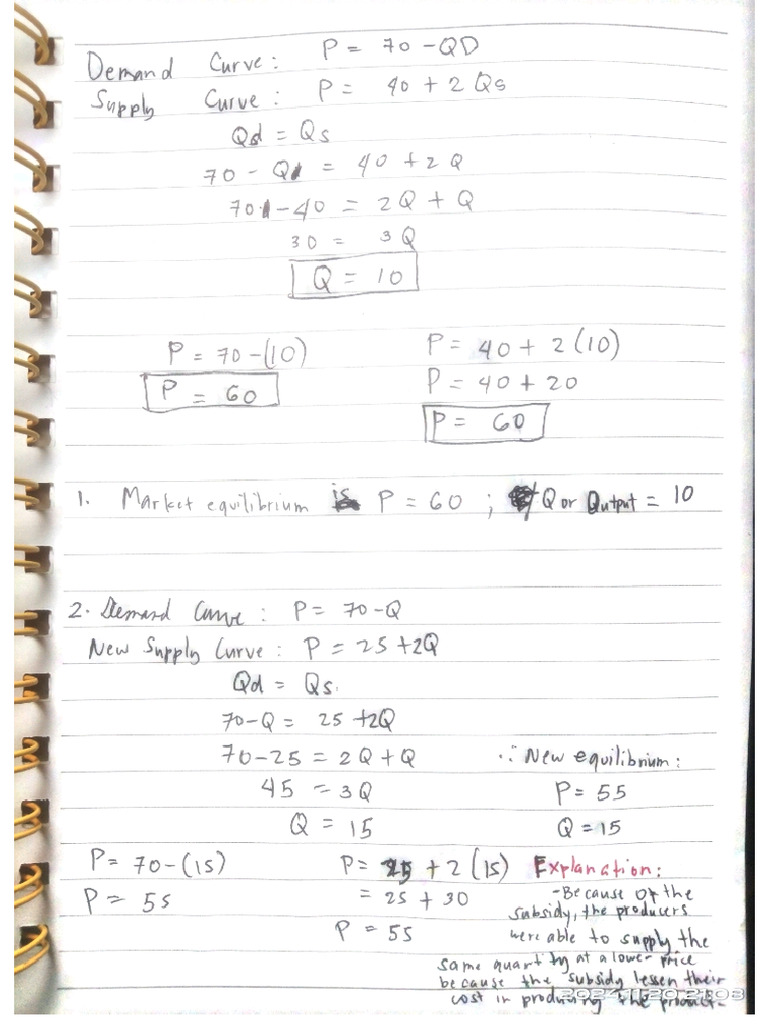 Demand Curve: P = 70 - QD
Supply Curve: P = 40 + 2 Qs
Qd = Qs
70 - Q = 40 + 2Q
70 - 40 = 2Q + Q
30 = 3Q
Q = 10
P = 70 - (10)
P = 60
P = 40 + 2 (10)
P = 40 + 20
P = 60
1. Market equilibrium is P = 60 ; Q or Output = 10
2. Demand Curve : P = 70 - Q
New Supply Curve : P = 25 + 2Q
Qd = Qs.
70 - Q = 25 + 2Q
70 - 25 = 2Q + Q
45 = 3Q
Q = 15
∴ New equilibrium :
P = 55
Q = 15
P = 70 - (15)
P = 55
P = 25 + 2 (15)
= 25 + 30
P = 55
Explanation :
- Because of the
subsidy, the producers
were able to supply the
same quantity at a lower price
because the subsidy lessen their
cost in producing the product.